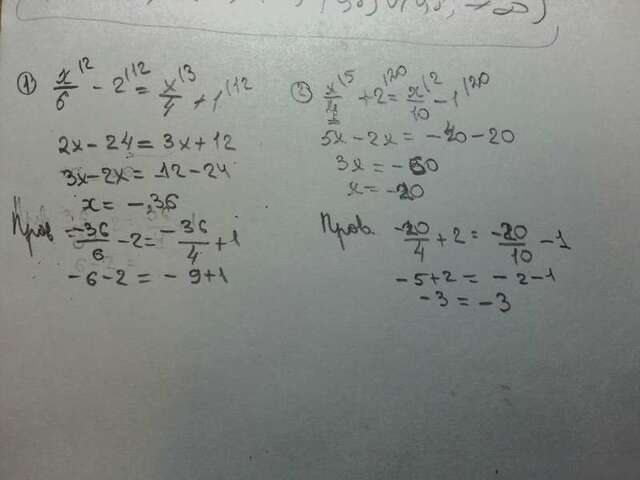 ① x/6 |2 - 2 |12 = x/4 |3 + 1 |12
2x - 24 = 3x + 12
3x - 2x = -12 - 24
x = -36
Пров. -36/6 - 2 = -36/4 + 1
-6 - 2 = -9 + 1
② x/4 |5 + 2 |20 = x/10 |2 - 1 |20
5x - 2x = -40 - 20
3x = -60
x = -20
Пров. -20/4 + 2 = -20/10 - 1
-5 + 2 = -2 - 1
-3 = -3